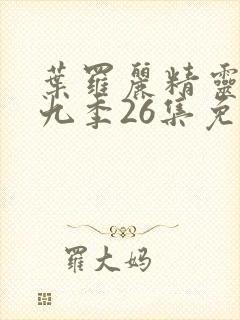 葉羅麗精靈
九季26集免
羅大妈